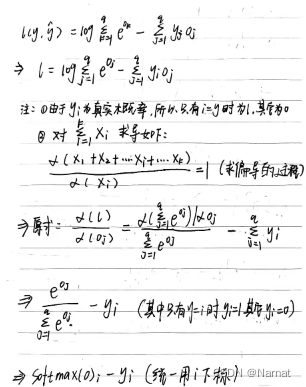 l(y,ŷ) = log Σ_{k=1}^{q} e^{o_k} - Σ_{j=1}^{q} y_j o_j
⇒ l = log Σ_{j=1}^{q} e^{o_j} - Σ_{j=1}^{q} y_j o_j
注: ①由于y_i为真实概率, 所以只有i=y时为1, 其余为0
② 对 Σ_{i=1}^{k} x_i 求导如下:
d(x_1+x_2+…x_i+…x_k) / d(x_i) = 1 (求偏导的过程)
⇒ 原式 = d(l)/d(o_j) = d(Σ_{j=1}^{q} e^{o_j})/d o_j / Σ_{j=1}^{q} e^{o_j} - Σ_{j=1}^{q} y_i
⇒ e^{o_j} / Σ_{j=1}^{q} e^{o_j} - y_i (其中只有y=i时 y_i=1 其余 y_i=0)
⇒ softmax(o)_i - y_i (统一用i下标)
CSDN @Narnat